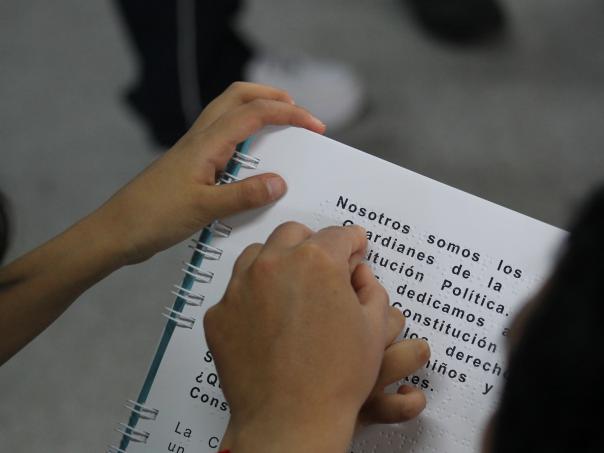 Nosotros somos los
Guardianes de la
titución Política.
dedicamos a
Constitución
los derechos
niños y
tes.
S
¿Qu
Cons
La C
un